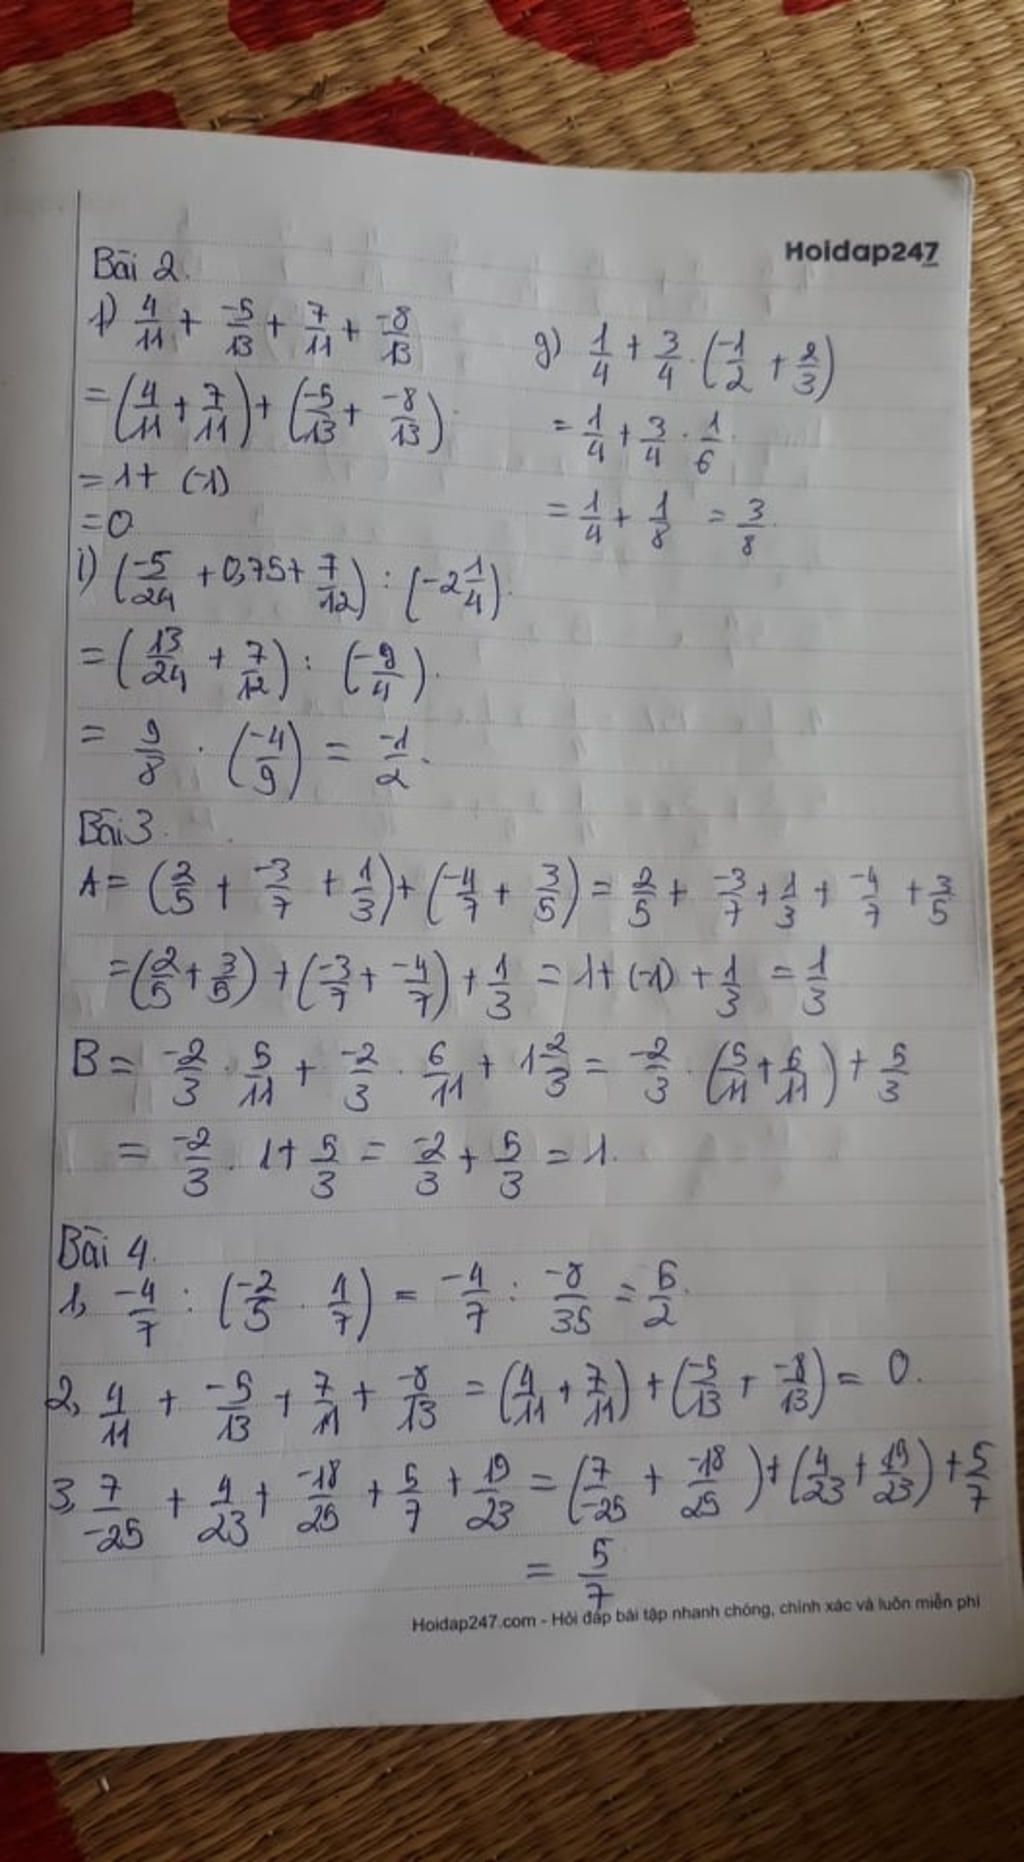 Hoidap247
Bài 2.
f) 4/11 + -5/13 + 7/11 + -8/13
= (4/11 + 7/11) + (-5/13 + -8/13)
= 1 + (-1)
= 0
g) 1/4 + 3/4 . (-1/2 + 2/3)
= 1/4 + 3/4 . 1/6
= 1/4 + 1/8 = 3/8
i) (-5/24 + 0,75 + 7/12) : (-2 1/4)
= (13/24 + 7/12) : (-9/4)
= 9/8 . (-4/9) = -1/2.
Bài 3.
A = (2/5 + -3/7 + 1/3) + (-4/7 + 3/5) = 2/5 + -3/7 + 1/3 + -4/7 + 3/5
= (2/5 + 3/5) + (-3/7 + -4/7) + 1/3 = 1 + (-1) + 1/3 = 1/3
B = -2/3 . 5/11 + -2/3 . 6/11 + 1 2/3 = -2/3 . (5/11 + 6/11) + 5/3
= -2/3 . 1 + 5/3 = -2/3 + 5/3 = 1.
Bài 4.
1, -4/7 : (-2/5 . 4/7) = -4/7 : -8/35 = 5/2.
2, 4/11 + -5/13 + 7/11 + -8/13 = (4/11 + 7/11) + (-5/13 + -8/13) = 0.
3, 7/-25 + 4/23 + -18/25 + 5/7 + 19/23 = (7/-25 + -18/25) + (4/23 + 19/23) + 5/7
= 5/7
Hoidap247.com - Hỏi đáp bài tập nhanh chóng, chính xác và luôn miễn phí